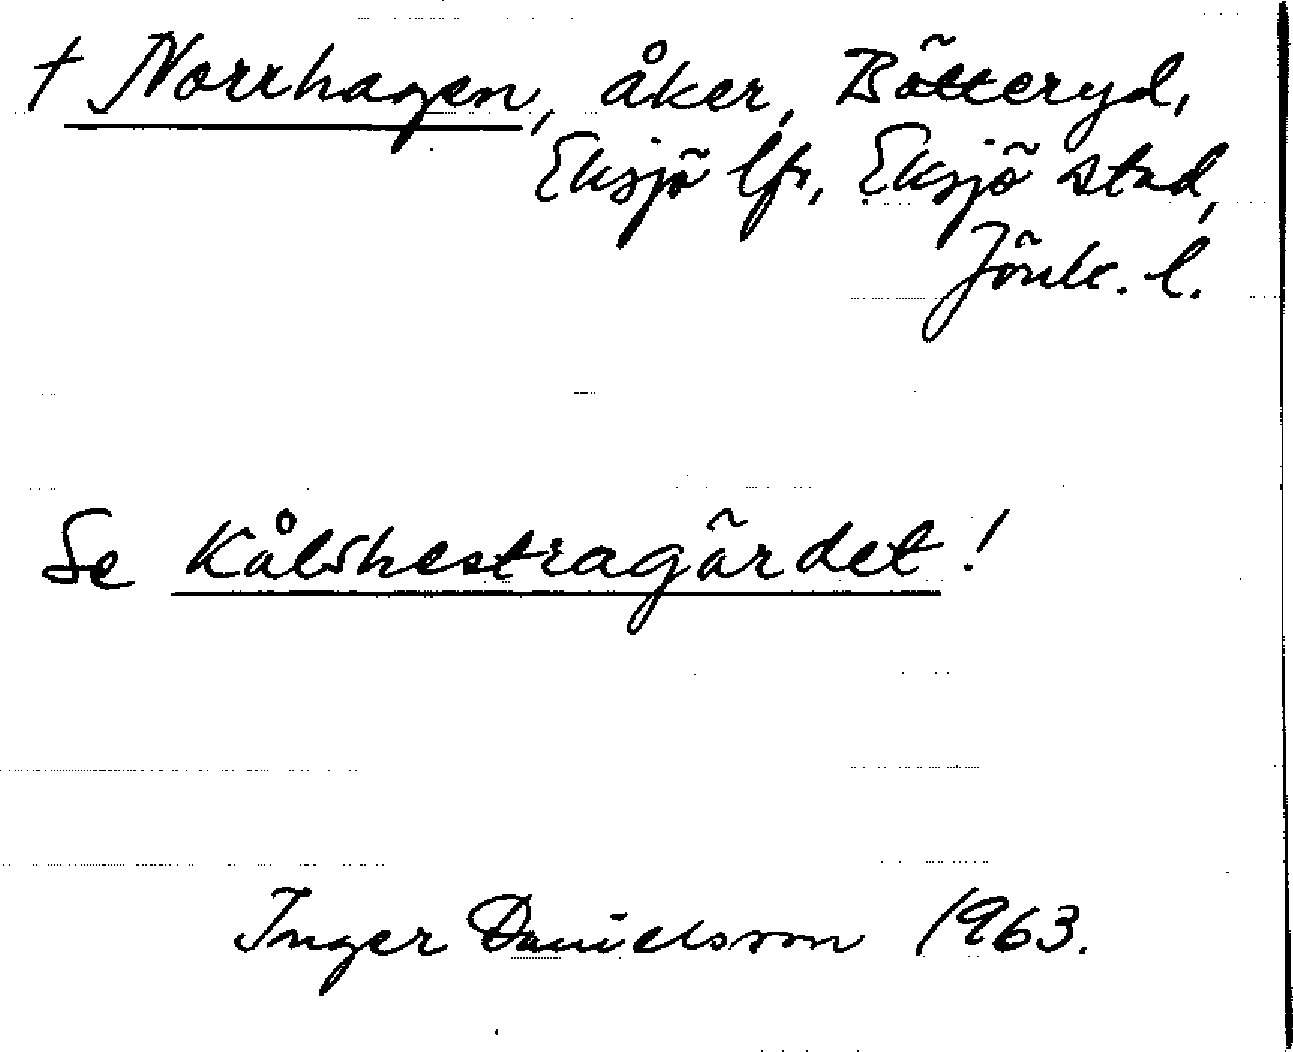 † Norrhagen, åker, Bötteryd,
Eksjö lfs, Eksjö stad,
Jönk. l.
Se Kålshestragärdet!
Inger Danielsson 1963.